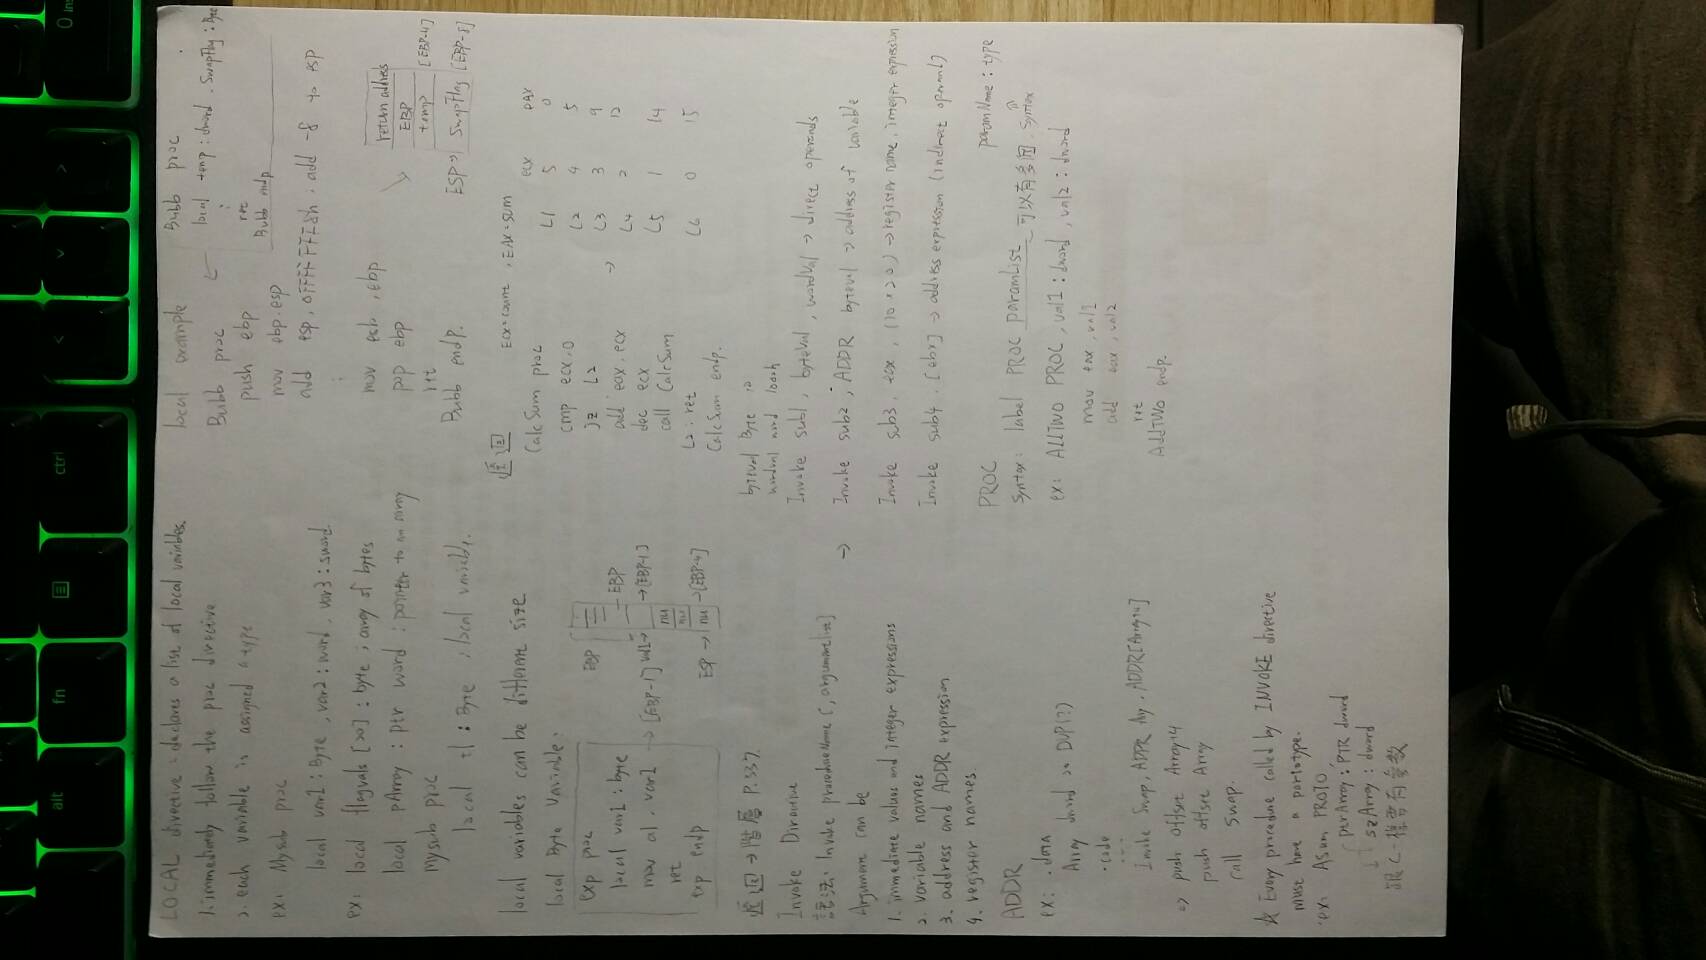 LOCAL directive : declares a list of local variables.
1. immediately follow the proc directive
2. each variable is assigned a type
ex: Mysub proc
local var1 : Byte , var2 : word , var3 : sword
ex: local flagvals [20] : byte ; array of bytes
local pArray : ptr word ; pointer to an array
mysub proc
local t1 : Byte ; local variable.
local variables can be different size
local Byte Variable:
exp proc
local var1 : byte
mov al , var1 → [EBP-1]
ret
exp endp
EBP
EBP
→ [EBP-1]
ESP →
nu
nu
nu
→ [EBP-4]
遞迴 → 階層 P.337.
Invoke Directive
語法: Invoke procedureName [, argumentlist]
Argument can be
1. immediate values and integer expressions
2. variable names
3. address and ADDR expression
4. register names.
ADDR
ex: .data
Array dword 20 DUP(?)
.code
....
Invoke Swap, ADDR Array , ADDR [Array+4]
=> push offset Array+4
push offset Array
call Swap.
Every procedure called by INVOKE directive
must have a portotype.
ex: ASum PROTO,
parArray : PTR dword
szArray : dword
跟 C 一樣會有參數
local example
Bubb proc
push ebp
mov ebp.esp
add esp, 0FFFFFFF8h ; add -8 to esp
mov esp , ebp
pop ebp
ret
Bubb endp.
Bubb proc
local temp : dword . SwapFlag : Byte
ret
Bubb endp
return address
EBP
temp [EBP-4]
ESP → SwapFlag [EBP-8]
遞迴 ECX=count , EAX=sum
CalcSum proc
cmp ecx, 0
jz L2
add eax, ecx
dec ecx
call CalcSum
L2: ret
CalcSum endp.
ecx eax
L1 5 0
L2 4 5
L3 3 9
L4 2 12
L5 1 14
L6 0 15
byteVal Byte 10
wordVal word 1000h
Invoke sub1, byteVal , wordVal → direct operands
→ Invoke sub2 , ADDR byteVal → address of variable
Invoke sub3 , eax , (10 * 20) → register name, integer expression
Invoke sub4 , [ebx] → address expression (indirect operand)
PROC paramName : type
Syntax: label PROC paramList 可以有多個 Syntax
ex: AllTWO PROC , val1 : dword , val2 : dword
mov eax , val1
add eax , val2
ret
AddTWO endp.
ctrl
alt
fn